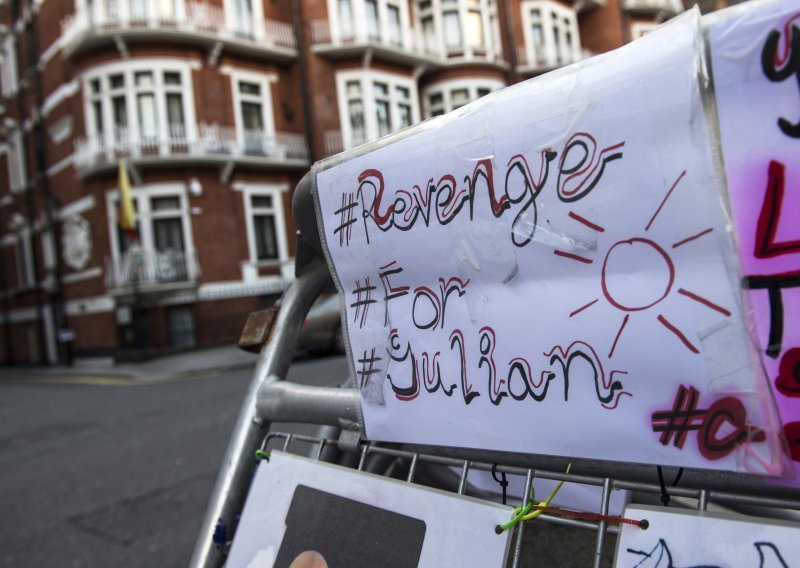 #Revenge
#For
#Julian